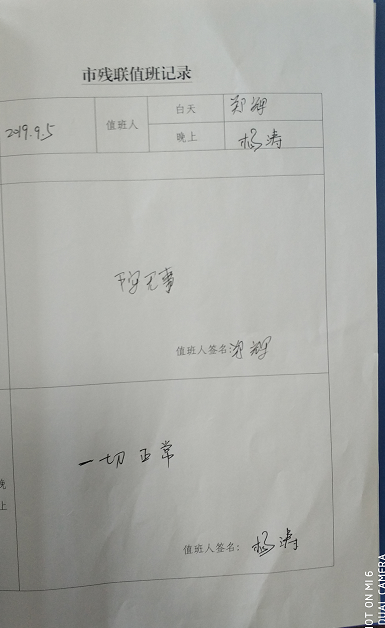 市残联值班记录
2019.9.5 值班人 白天 郑辉
晚上 杨涛
平安无事
值班人签名:郑辉
晚上
一切正常
值班人签名: 杨涛
SHOT ON MI 6
DUAL CAMERA